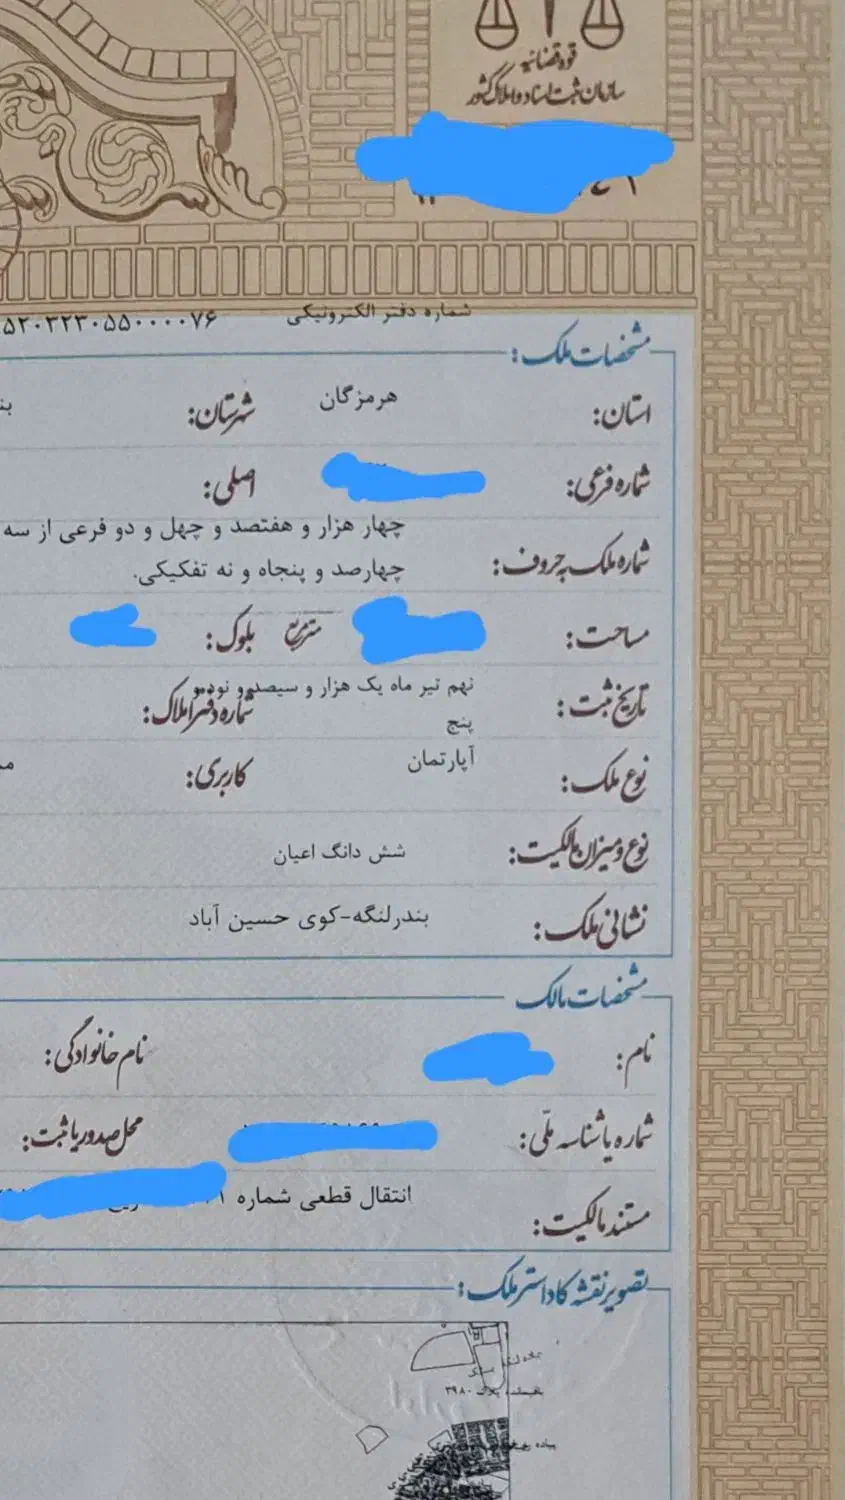 قوه قضائیه
سازمان ثبت اسناد و املاک کشور
شماره دفتر الکترونیکی ۵۲۰۳۲۳۰۵۵۰۰۰۰۷۶
مشخصات ملک:
استان: هرمزگان شهرستان:
شماره فرعی: اصلی:
شماره ملک به حروف: چهار هزار و هفتصد و چهل و دو فرعی از سه
چهارصد و پنجاه و نه تفکیکی.
مساحت: مترمربع بلوک:
تاریخ ثبت: نهم تیر ماه یک هزار و سیصد و نود و شماره دفتر املاک:
پنج
نوع ملک: آپارتمان کاربری:
نوع و میزان مالکیت: شش دانگ اعیان
نشانی ملک: بندرلنگه-کوی حسین آباد
مشخصات مالک
نام: نام خانوادگی:
شماره یا شناسه ملّی: محل صدور یا ثبت:
مستند مالکیت: انتقال قطعی شماره
تصویر نقشه کاداستر ملک:
باقیمانده پلاک ۳۹۸۰
پیاده رو